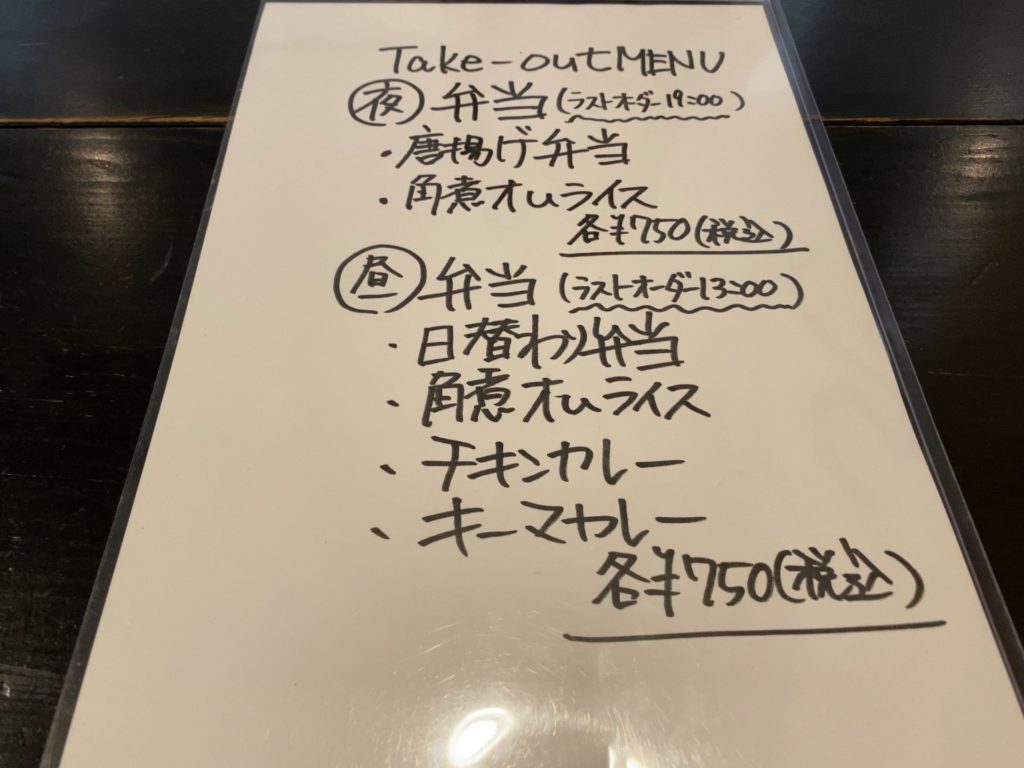 Take-outMENU
夜 弁当 (ラストオーダー19:00)
・唐揚げ弁当
・角煮オムライス
各¥750(税込)
昼 弁当 (ラストオーダー13:00)
・日替わり弁当
・角煮オムライス
・チキンカレー
・キーマカレー
各¥750(税込)